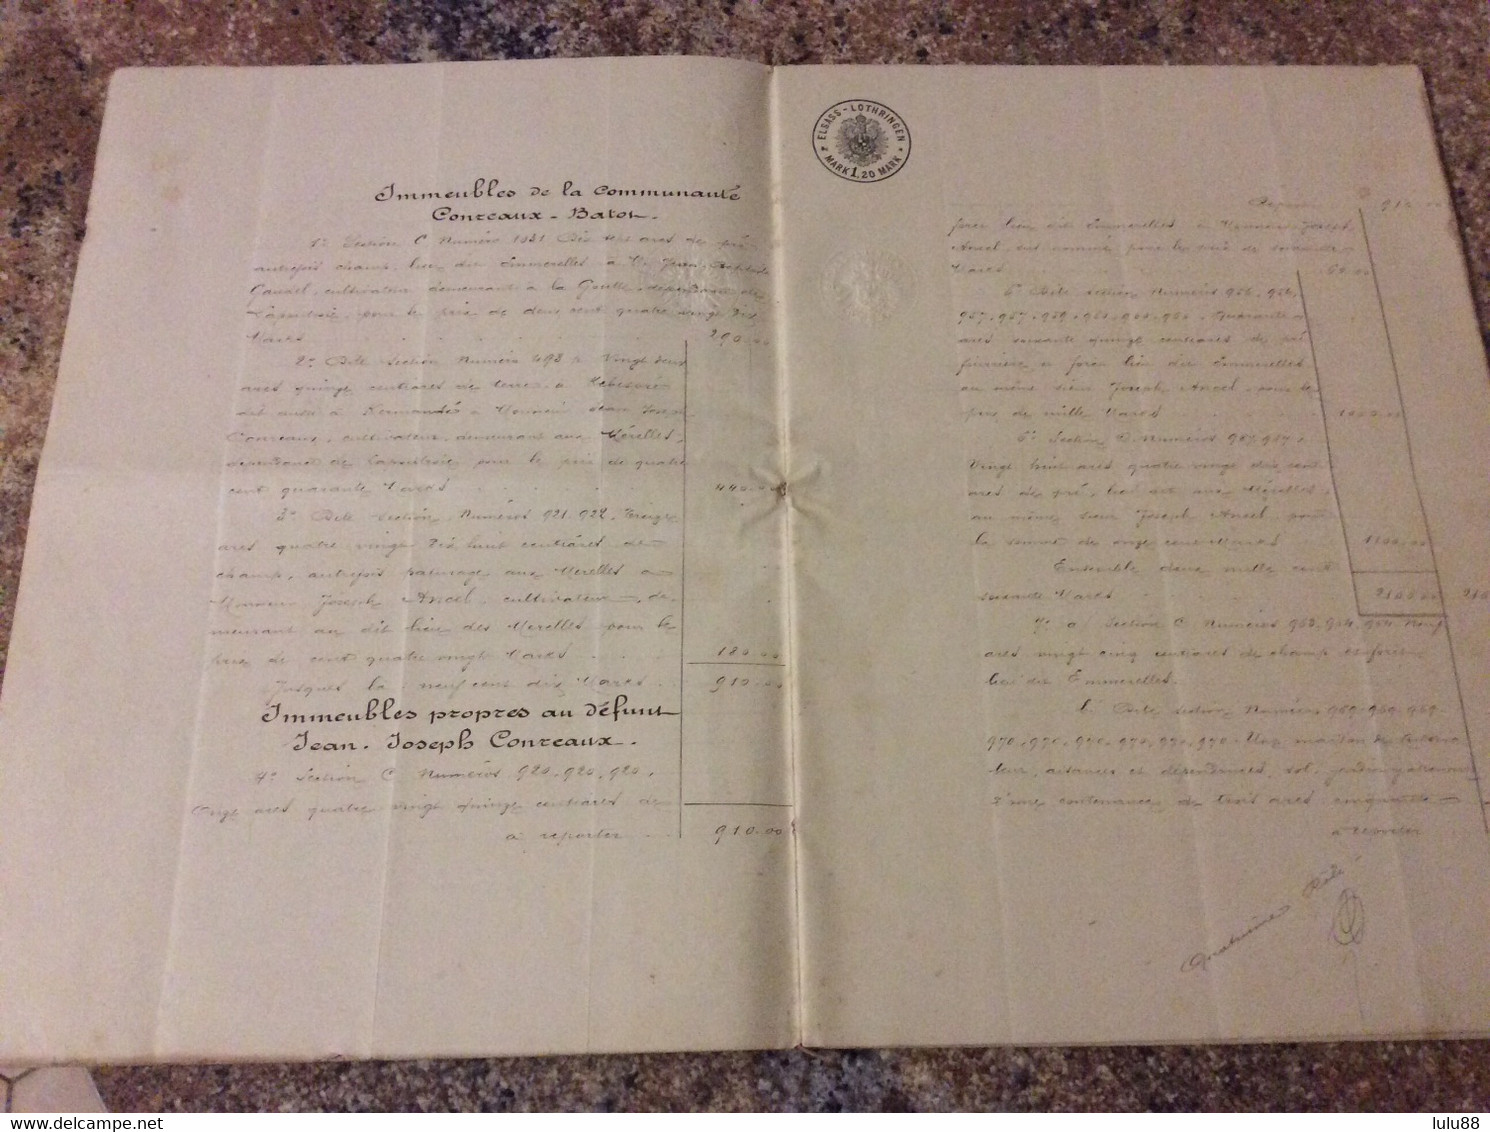 Immeubles de la Communauté
Conreaux - Batot.
1° Section C Numéro 1031 Dix sept ares de pré
autrefois champ, lieu dit Immerelles à M. Jean Baptiste
Gaudel, cultivateur demeurant à la Goutte, dépendance de
Lapoutroie, pour le prix de deux cent quatre vingt dix
Marks 290.00
2° Dite section Numéro 498 Vingt deux
ares quinze centiares de terre, à
dit aussi à à Monsieur Jean Joseph
Conreaux, cultivateur, demeurant aux Mérelles,
dépendance de Lapoutroie pour le prix de quatre
cent quarante Marks 440.00
3° Dite section, Numéros 921. 922, Treize
ares quatre vingt dix huit centiares de
champ, autrefois pâturage aux Merelles à
Monsieur Joseph Ancel, cultivateur, de-
meurant au dit lieu des Merelles pour le
prix de cent quatre vingt Marks 180.00
Jusques là neuf cent dix Marks 910.00
Immeubles propres au défunt
Jean. Joseph Conreaux.
4° Section C Numéros 920, 920, 920,
Onze ares quatre vingt quinze centiares de
à reporter 910.00
ELSASS-LOTHRINGEN
MARK 1.20 MARK
Report 910.00
forêt lieu dit Immerelles à Monsieur Joseph
Ancel sus nommé pour le prix de soixante
Marks 60.00
5° Dite section Numéros 956, 956,
957, 957, 959, 960, 960, 960, Quarante
ares soixante quinze centiares de pré
et forêt lieu dit Immerelles
au même sieur Joseph Ancel, pour le
prix de mille Marks 1000.00
6° Section C Numéros 957, 957
Vingt huit ares quatre vingt dix centi-
ares de pré, lieu dit aux Mérelles,
au même sieur Joseph Ancel pour
la somme de onze cent Marks 1100.00
Ensemble deux mille cent
soixante Marks 2160.00
7° a Section C Numéros 963, 964, 964 Neuf
ares vingt cinq centiares de champ et forêt
lieu dit Immerelles.
b. Dite section Numéros 969. 969. 969.
970, 970, 970, 970, 970, 970. Une maison de cultiva-
teur, aisances et dépendances, sol, jardin
d'une contenance de trois ares cinquante
à reporter
Quatrième Rôle
lulu88